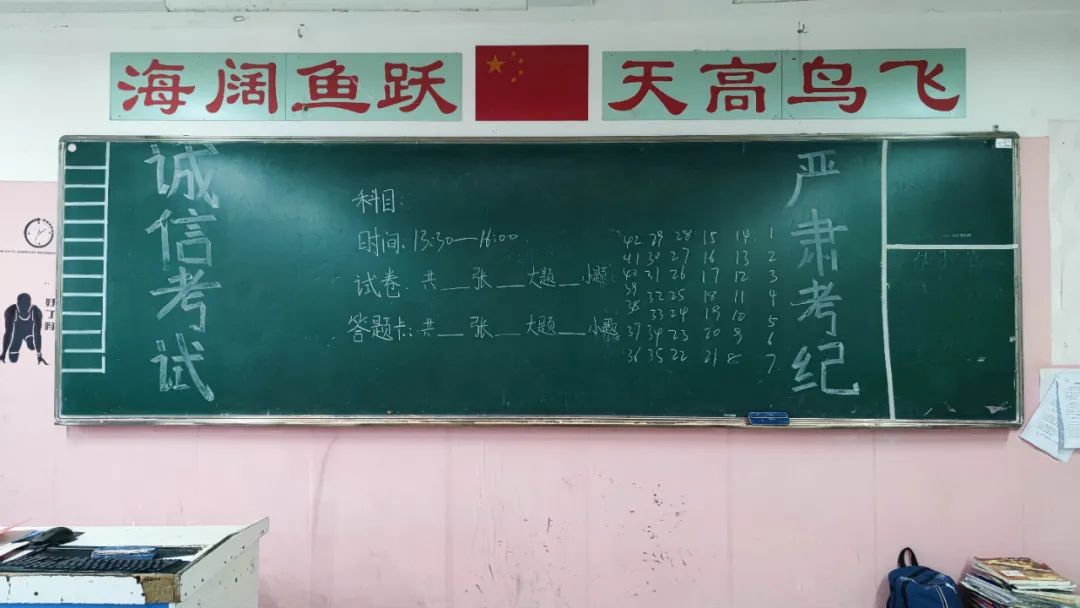 海阔鱼跃 天高鸟飞
诚信考试
科目:
时间: 13:30—16:00
试卷: 共__张__大题__小题
答题卡: 共__张__大题__小题
42 29 28 15 14 1
41 30 27 16 13 2
40 31 26 17 12 3
39
38 32 25 18 11 4
33 24 19 10 5
37 34 23 20 9 6
36 35 22 21 8 7
严肃考纪